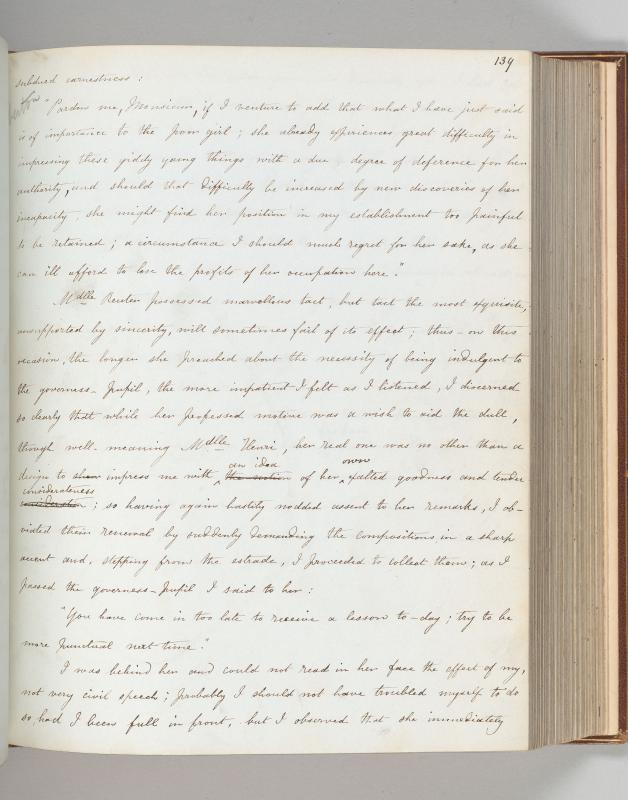 139
subdued earnestness:
"Pardon me, Monsieur, if I venture to add that what I have just said
is of importance to the poor girl; she already experiences great difficulty in
impressing these giddy young things with a due degree of deference for her
authority, and should that difficulty be increased by new discoveries of her
incapacity, she might find her position in my establishment too painful
to be retained; a circumstance I should much regret for her sake, as she
can ill afford to lose the profits of her occupation here."
Mdlle Reuter possessed marvellous tact, but tact the most exquisite,
unsupported by sincerity, will sometimes fail of its effect; thus-on this
occasion, the longer she preached about the necessity of being indulgent to
the governess-pupil, the more impatient I felt as I listened, I discerned
so clearly that while her professed motive was a wish to aid the dull,
though well-meaning Mdlle Henri, her real one was no other than a
an idea own
design to impress me with the notion of her exalted goodness and tender
considerateness
consideration; so having again hastily nodded assent to her remarks, I ob-
viated their renewal by suddenly demanding the compositions, in a sharp
accent and, stepping from the estrade, I proceeded to collect them; as I
passed the governess-pupil I said to her:
"You have come in too late to receive a lesson to-day; try to be
more punctual next time."
I was behind her and could not read in her face the effect of my,
not very civil speech; probably I should not have troubled myself to do
so, had I been full in front, but I observed that she immediately